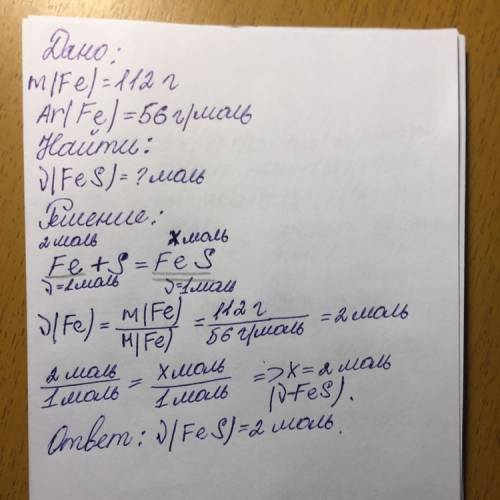 Дано:
m(Fe)=112 г
Ar(Fe)=56 г/моль
Найти:
ν(FeS)=? моль
Решение:
2 моль x моль
Fe + S = FeS
ν=1 моль ν=1 моль
ν(Fe)= m(Fe)/M(Fe) = 112 г/56 г/моль = 2 моль
2 моль/1 моль = x моль/1 моль => x = 2 моль
(ν-FeS).
Ответ: ν(FeS)=2 моль.